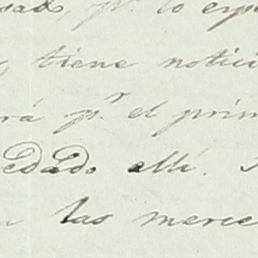 pr. lo
tiene notici
rá pr. el prim
edado allí.
las merce